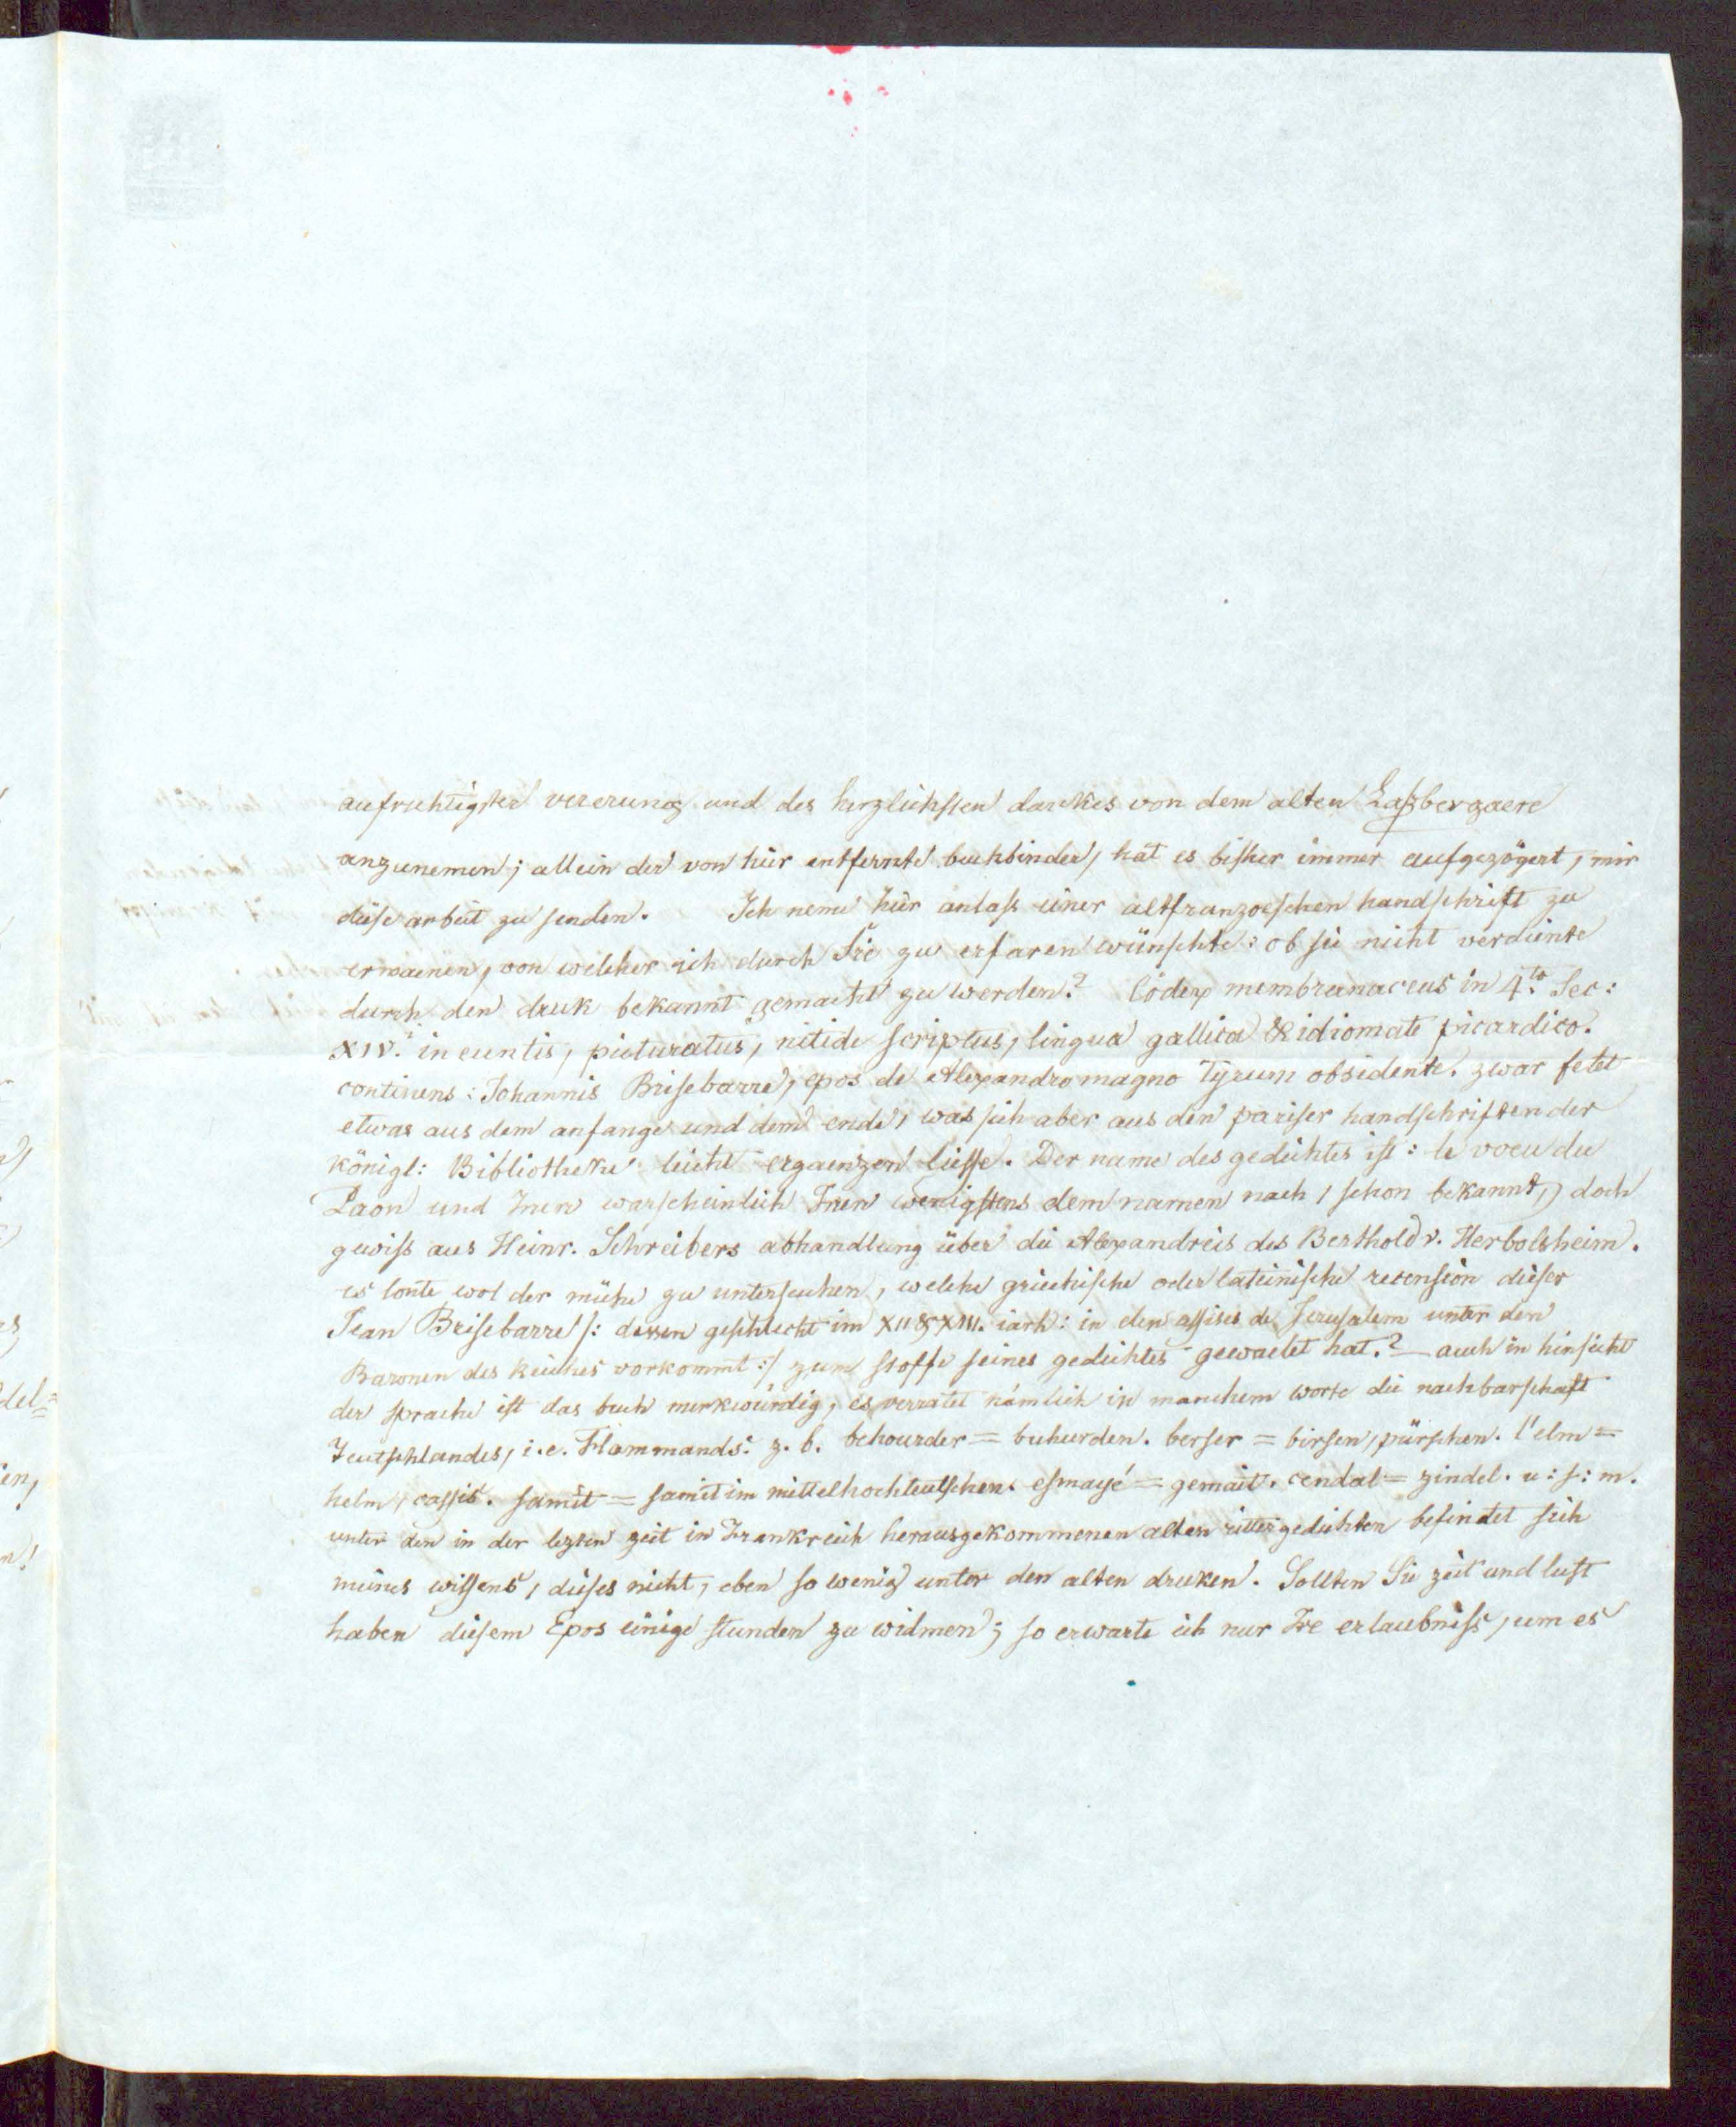 aufrichtigster vererung und des herzlichsten dankes von dem alten Laßbergaere
anzunemen; allein der von hier entfernte buchbinder, hat es bisher immer aufgezögert, mir
diese arbeit zu senden. Ich neme hier anlass einer altfranzoeschen handschrift zu
erwaenen, von welcher ich durch Sie zu erfaren wünschte: ob sie nicht verdiente
durch den druk bekannt gemacht zu werden? Codex membranaceus in 4.to Sec:
XIV.i ineuntis, picturatus, nitide scriptus, lingua gallica & idiomate picardico.
continens: Johannis Brisebarre, epos de Alexandro magno Tyrum obsidente. zwar felet
etwas aus dem anfange und dem ende, was sich aber aus den pariser handschriften der
königl: Bibliotheke leicht ergaenzen liesse. Der name des gedichtes ist: le voeu du
Paon und Inen warscheinlich Inen wenigstens dem namen nach, schon bekannt, doch
gewiss aus Heinr. Schreibers abhandlung über die Alexandreis des Berthold v. Herbolsheim.
es lonte wol der mühe zu untersuchen, welche griechische oder lateinische recension dieser
Jean Brisebarre /: dessen geschlecht im XII & XIII. iarh: in den assises de Jerusalem unter den
Baronen des Reiches vorkommt :/ zum stoffe seines gedichtes gewaelet hat.? — auch in hinsicht
der sprache ist das buch merkwürdig, es verratet nämlich in manchem worte die nachbarschaft
Teutschlandes, i. e. Flammands. z. b. behourder = buhurden. berser = birsen, pürschen. l'elm =
helm, cassis. samit = samit im mittelhochteutschen. esmayé = gemait. cendal = zindel. u: s: m.
unter den in der lezten zeit in Frankreich herausgekommenen alten rittergedichten befindet sich
meines wissens, dieses nicht, eben so wenig unter den alten druken. Sollten Sie zeit und lust
haben diesem Epos einige stunden zu widmen; so erwarte ich nur Ire erlaubniss, um es